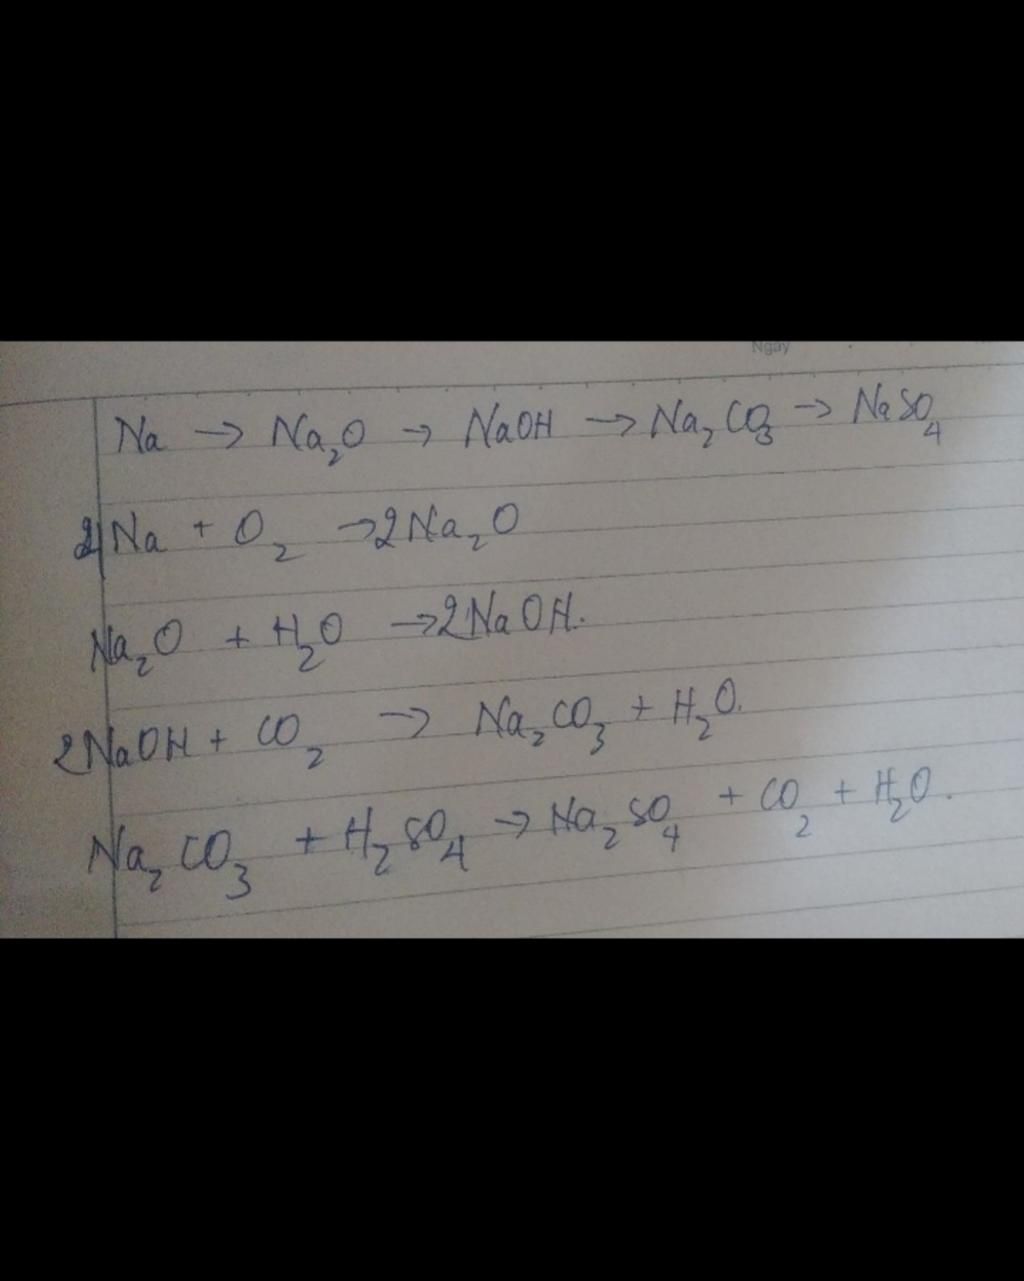 Ngày
Na → Na₂O → NaOH → Na₂CO₃ → NaSO₄
4Na + O₂ → 2Na₂O
Na₂O + H₂O → 2NaOH.
2NaOH + CO₂ → Na₂CO₃ + H₂O.
Na₂CO₃ + H₂SO₄ → Na₂SO₄ + CO₂ + H₂O.